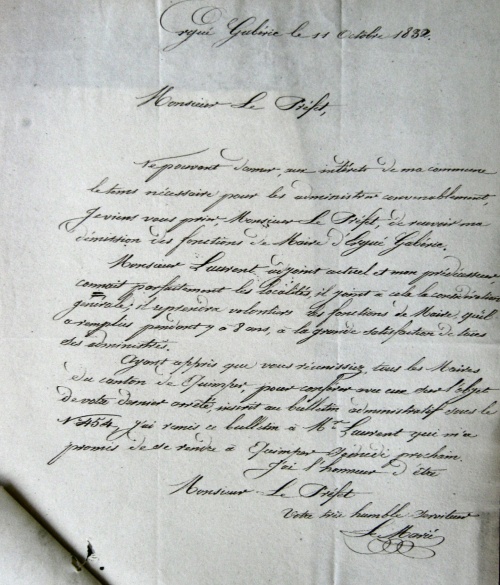 Ergué Gabéric le 11 Octobre 1832.
Monsieur Le Préfet,
Ne pouvant donner, aux intérêts de ma commune
le tems nécessaire pour les administrer convenablement,
Je viens vous prier, Monsieur Le Préfet, de recevoir ma
démission des fonctions de Maire d'Ergué Gabéric.
Monsieur Laurent, adjoint actuel et mon prédécesseur
connait parfaitement les localités, il joint à cela la considération
générale, il reprendra volontiers les fonctions de Maire, qu'il
a remplies pendant 7 à 8 ans, à la grande satisfaction de
des administrés.
Ayant appris que vous réunissiez tous les Maires
du canton de Quimper pour conférer avec eux sur l'objet
de votre dernier arrêté, inscrit au bulletin administratif sous le
N° 454, J'ai remis ce bulletin à Mr. Laurent qui m'a
promis de se rendre à Quimper Samedi prochain.
J'ai l'honneur d'être
Monsieur Le Préfet
Votre très humble Serviteur
Le Marié